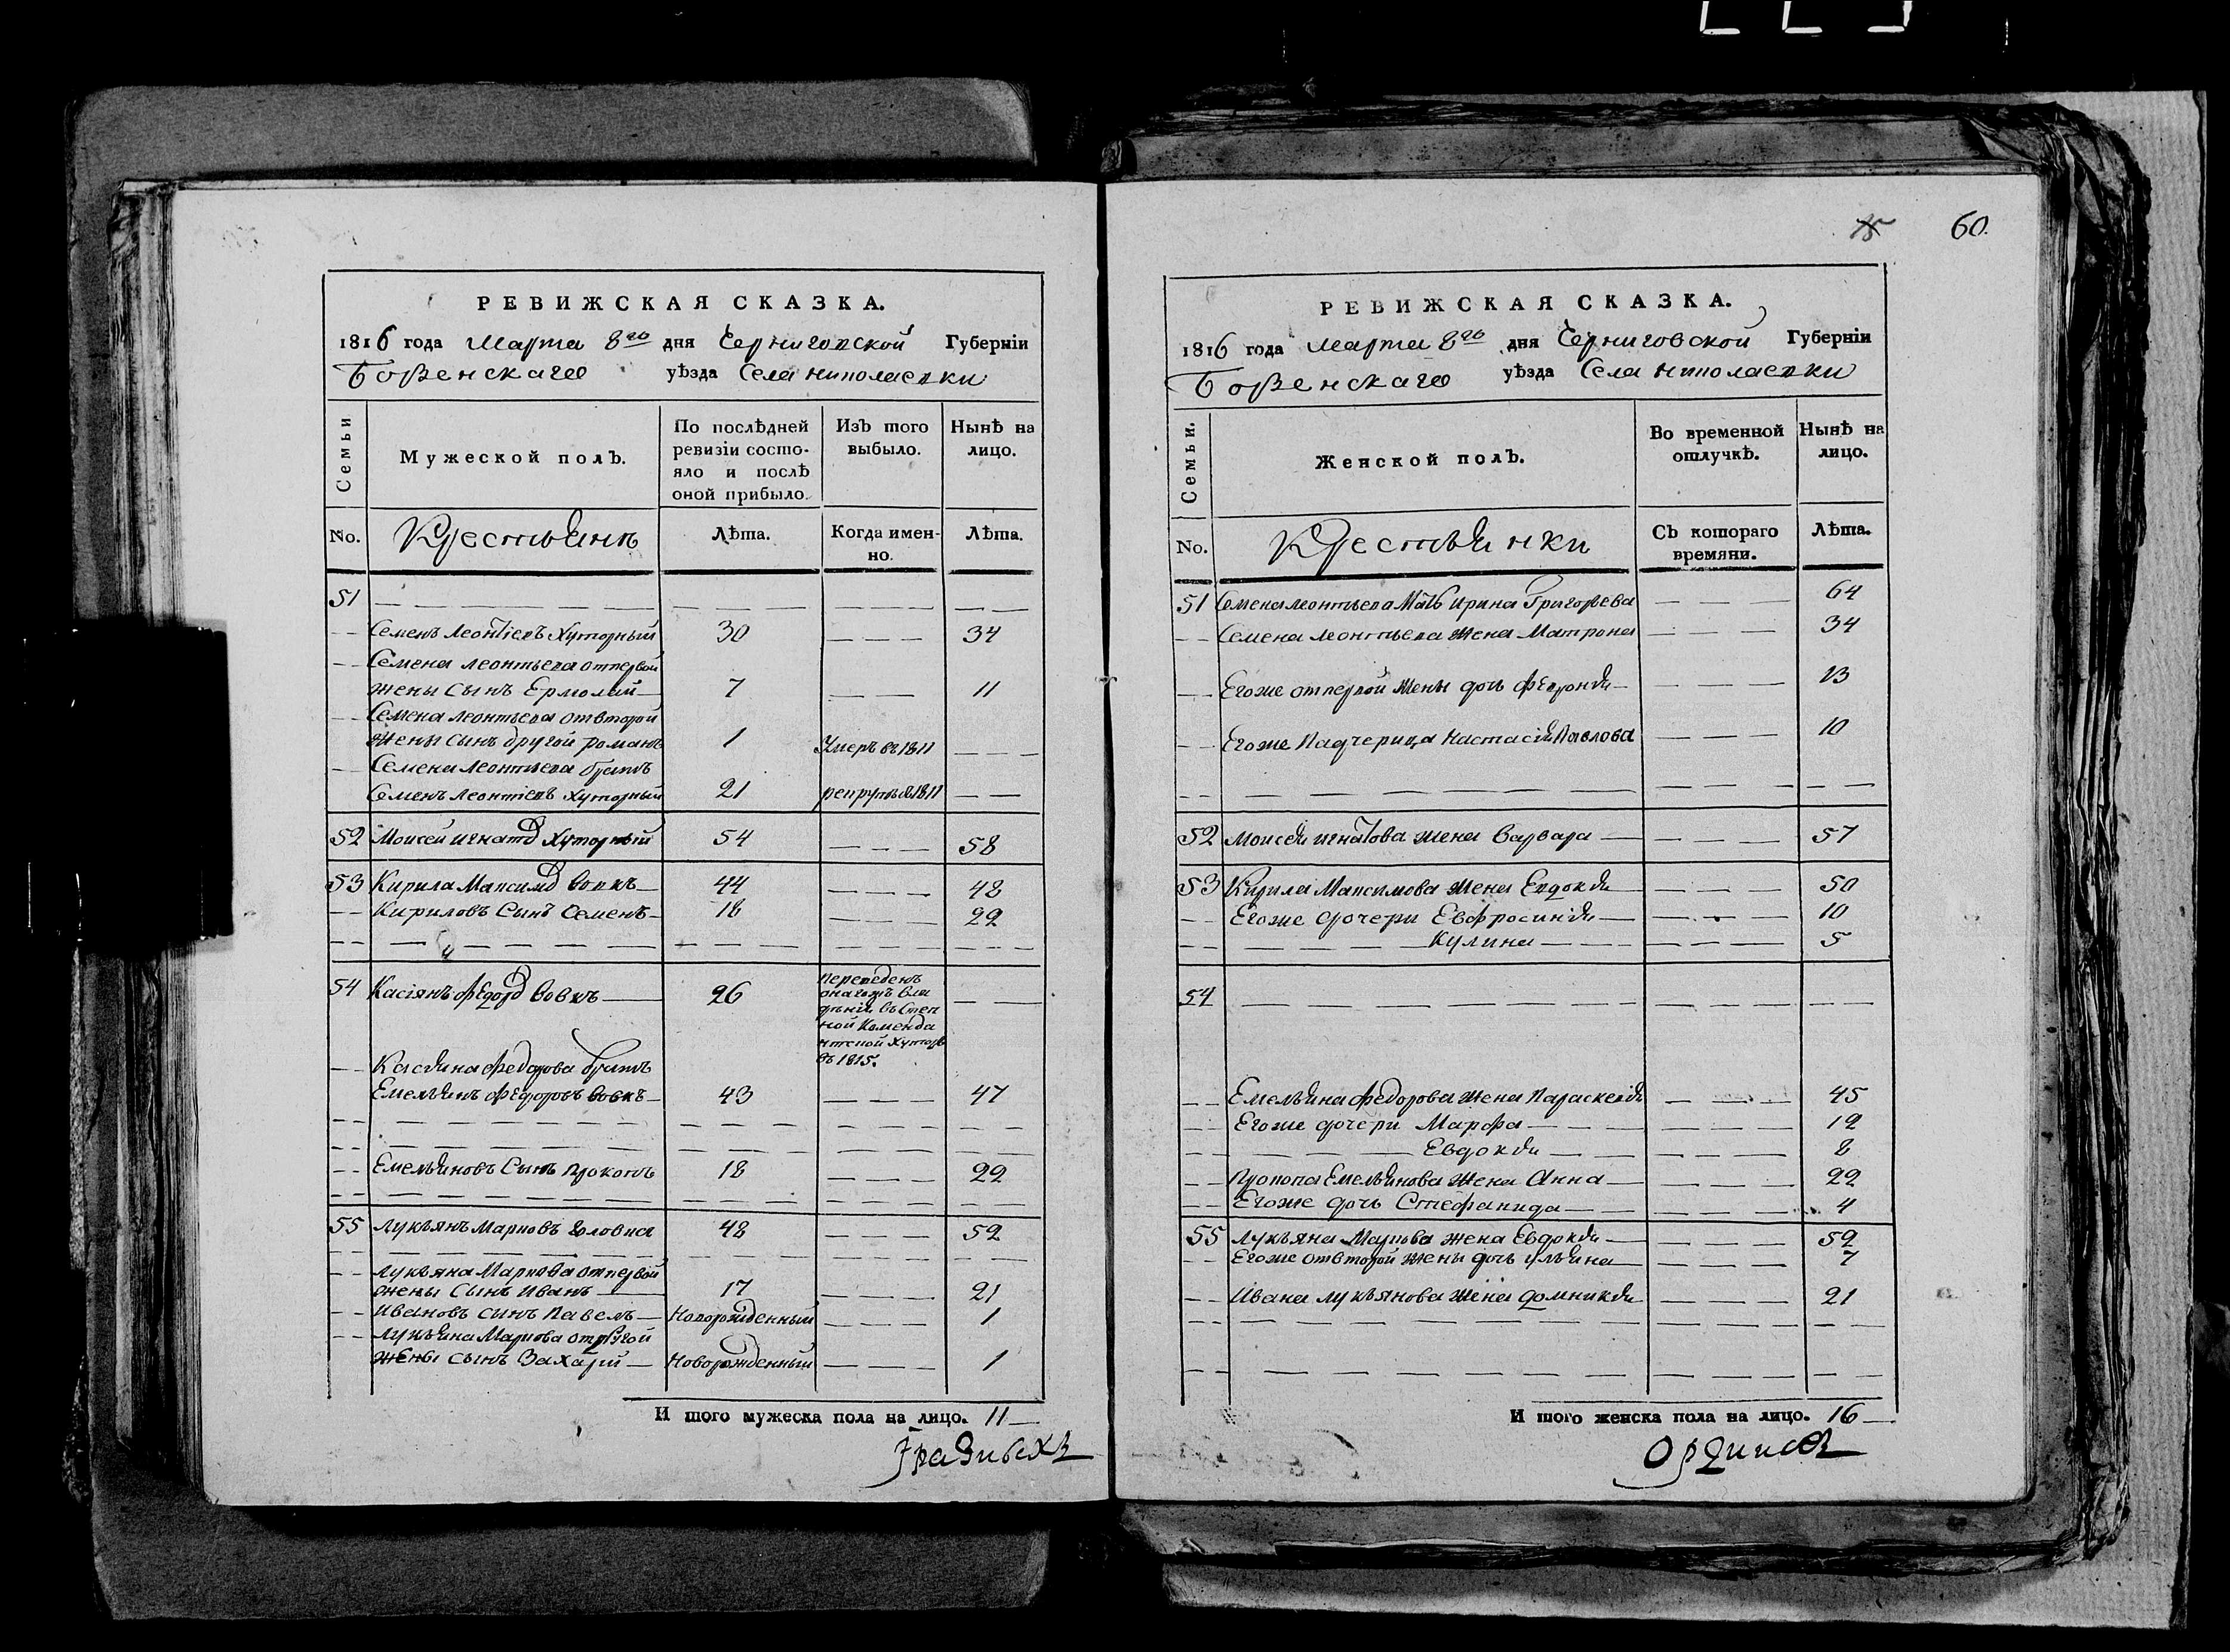 РЕВИЖСКАЯ СКАЗКА.
1816 года Марта 8го дня Черниговской Губерніи
Борзенскаго уѣзда Села Николаевки
Семьи
Мужеской полъ.
По послѣдней ревизіи состо-
яло и послѣ
оной прибыло.
Изъ того
выбыло.
Нынѣ на
лицо.
No. Крестьянъ Лѣта. Когда имен-
но. Лѣта.
51
Семенъ Леонтіевъ Хуторный 30 34
Семена Леонтьева отпервой
жены сынъ Ермолай 7 11
Семена Леонтьева отвторой
жены сынъ другой Романъ 1 Умеръ въ 1811
Семена Леонтьева братъ
Семенъ Леонтіевъ Хуторный 21 рекрутъ въ 1811
52 Моисей Игнатовъ Хуторный 54 58
53 Кирила Максимовъ Вовкъ 44 48
Кириловъ Сынъ Семенъ 18 22
54 Касіянъ Федоровъ Вовкъ 26 переведенъ
онагожъ вла
дѣнія въ Степ
ной Коменда
нтской Хуторъ
въ 1815.
Касьяна Федорова братъ
Емельянъ Федоровъ Вовкъ 43 47
Емельяновъ Сынъ Прокопъ 18 22
55 Лукьянъ Марковъ Головка 48 52
Лукьяна Маркова отпервой
жены Сынъ Иванъ 17 21
Ивановъ сынъ Павелъ Новорожденный 1
Лукьяна Маркова отдругой
жены сынъ Захарій Новорожденный 1
И того мужеска пола на лицо. 11
60.
РЕВИЖСКАЯ СКАЗКА.
1816 года Марта 8го дня Черниговской Губерніи
Борзенскаго уѣзда Села Николаевки
Семьи.
Женской полъ.
Во временной
отлучкѣ.
Нынѣ на
лицо.
No. Крестьянки Съ котораго
времяни. Лѣта.
51 Семена Леонтьева Мать Ирина Григорьева 64
Семена Леонтьева жена Матрона 34
Егоже отпервой жены дочь Февронія 13
Егоже Падчерица Настасія Павлова 10
52 Моисея Игнатова жена Варвара 57
53 Кирила Максимова жена Евдокія 50
Егоже дочери Евфросинія 10
Кулина 5
54
Емельяна Федорова жена Параскевія 45
Егоже дочери Марфа 12
Евдокія 8
Прокопа Емельянова жена Анна 22
Егоже дочь Стефанида 4
55 Лукьяна Маркова жена Евдокія 52
Егоже отвторой жены дочь Ульяна 7
Ивана Лукьянова жена Домникія 21
И того женска пола на лицо. 16